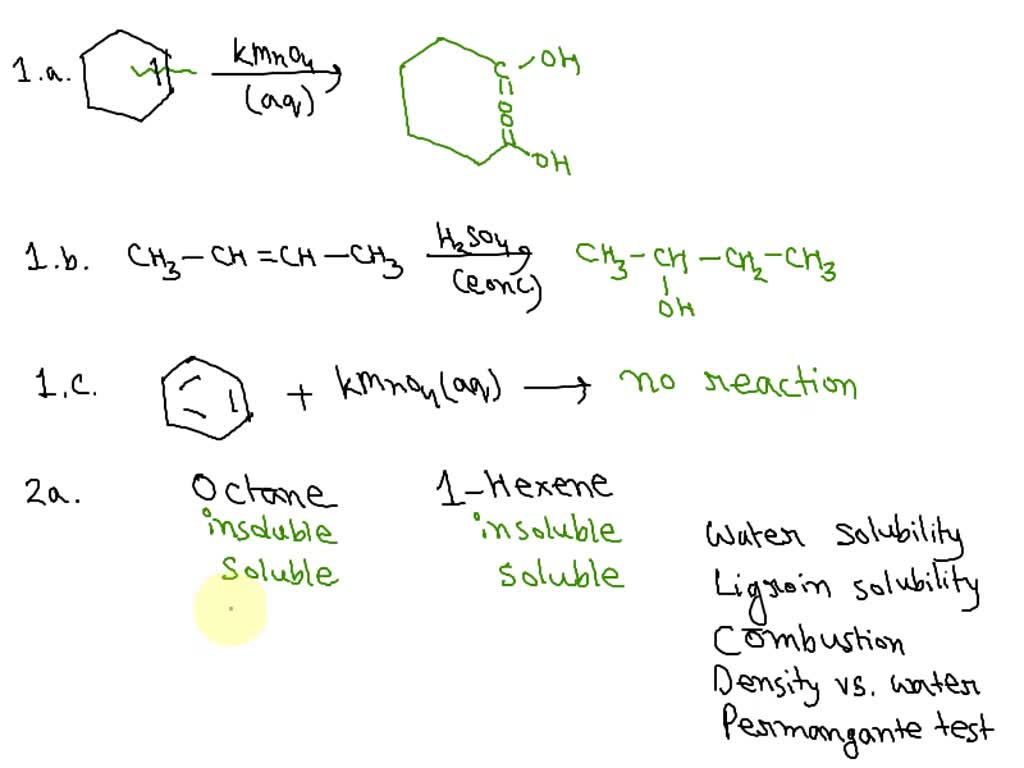 1.a. KMnO4 (aq) C OH O O C OH
1.b. CH3-CH=CH-CH3 H2SO4 (conc) CH3-CH-CH2-CH3
OH
1.c. + KMnO4(aq) → no reaction
2a. Octane 1-Hexene
insoluble insoluble Water solubility
Soluble soluble Ligroin solubility
Combustion
Density vs. water
Permangante test